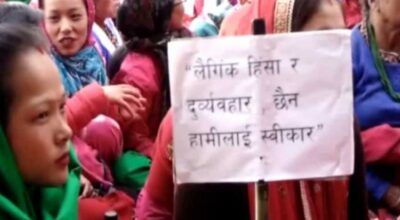 "लैगिंक हिंसा र
दुर्व्यवहार , छैन
हामीलाई स्वीकार"